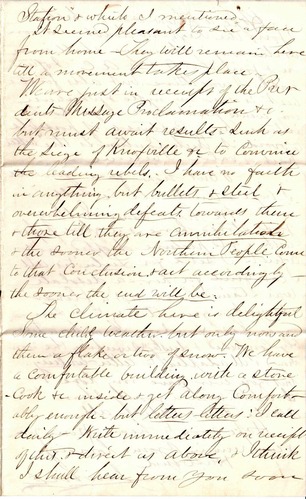 Station & which I mentioned
It seemed pleasant to see a face
from home - they will remain here
till a movement takes place -
We are just in receipt of the Presi
dents Message Proclamation & c
but must await results such as
the Siege of Knoxville &c to convince
the leading rebels. I have no faith
in anything but bullets & steel &
overwhelming defeats, towards them
& those till they are annihilated
& the sooner the Northern People come
to that conclusion & act accordingly
the sooner the end will be.
The climate here is delightful
some chilly weather but only now and
then a flake or two of snow. We have
a comfortable building with a stove
Cook &c inside & get along Comfort-
ably enough - but letters letters! I call
daily Write immediately on receipt
of this & direct as above, & I think
I shall hear from you soon